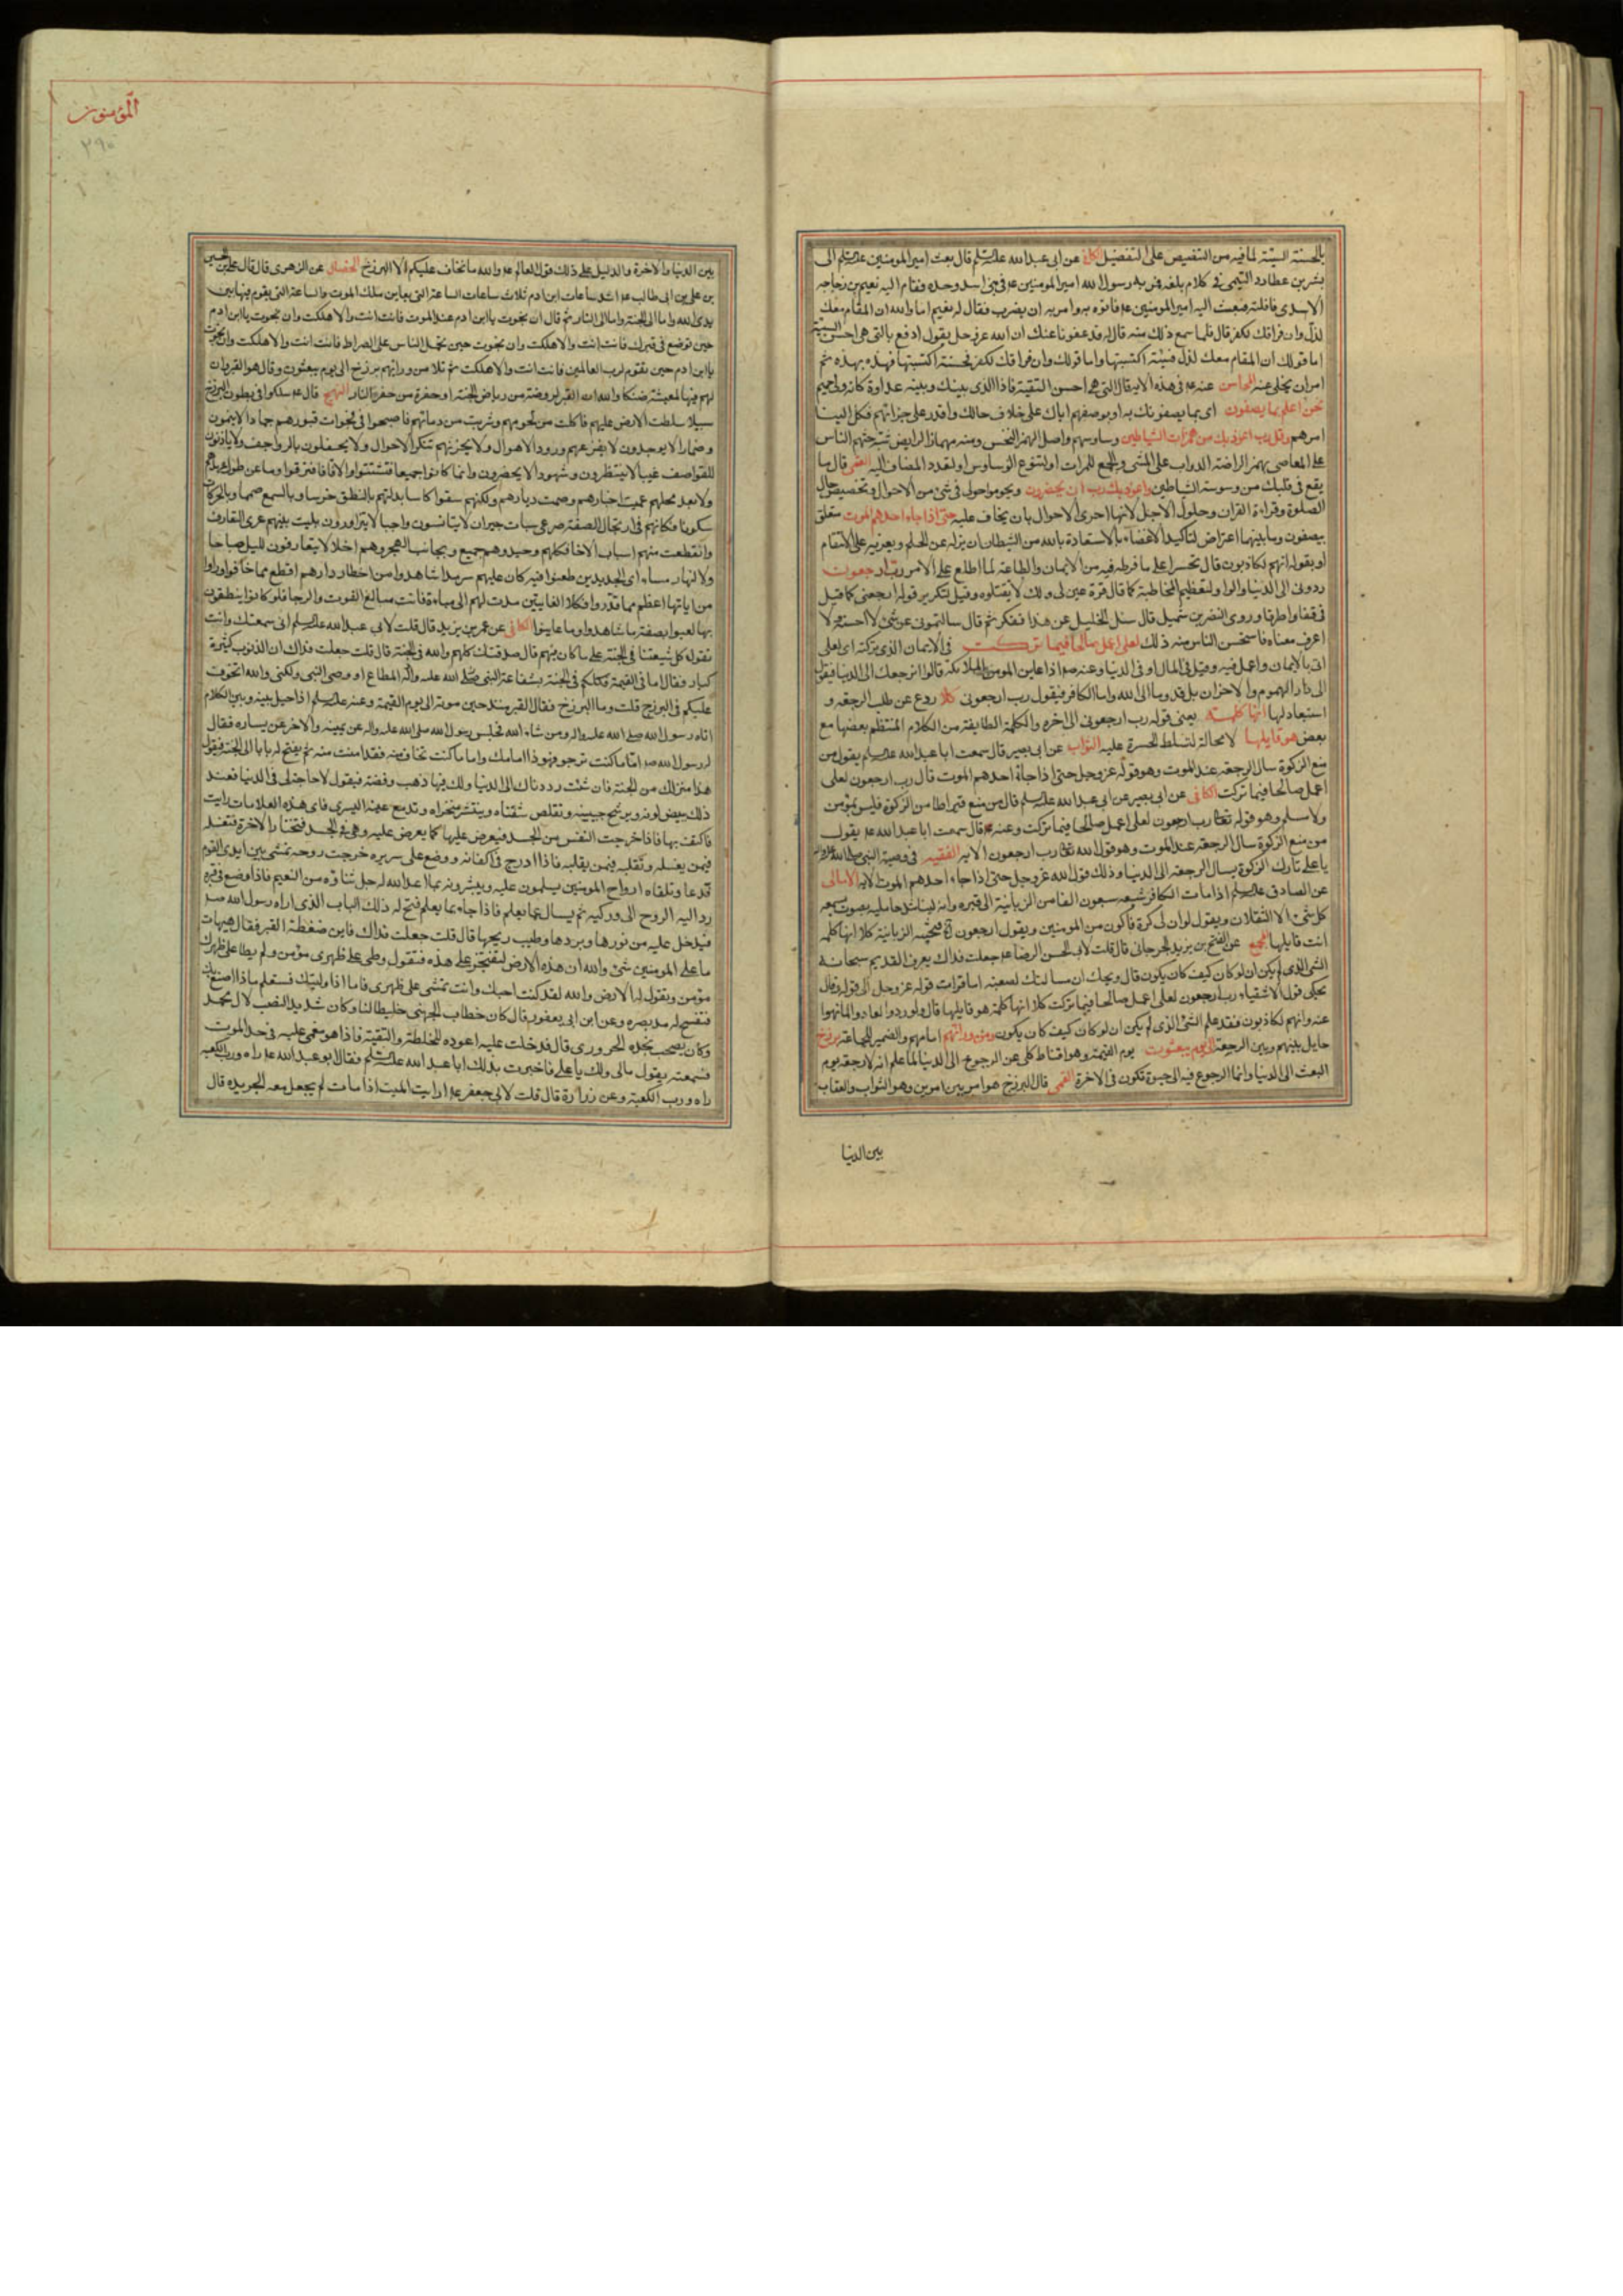 بالحسنة السيئة لما فيه من التنصيص على التفضيل الكافي عن ابي عبد الله عليه السلم قال بعث امير المومنين عليه السلم الى
بشر بن عطارد التيمي في كلام بلغه فمر به رسول الله امير المومنين ع في بني اسد وحده فقام اليه نعيم بن دجاجه
الاسدي فافلته فبعث اليه امير المومنين ع فاتوه به وامر به ان يضرب فقال له نعيم اما والله ان المقام معك
لذل وان فراقك لكفر قال فلما سمع ذلك منه قال له قد عفونا عنك ان الله عز وجل يقول ادفع بالتي هي احسن السيئة
اما قولك ان المقام معك لذل فسيئة اكتسبتها واما قولك وان فراقك لكفر فحسنة اكتسبتها فهذه بهذه ثم
امر ان يخلى عنه المحاسن عنه ع في هذه الاية قال التي هي احسن التقية فاذا الذي بينك وبينه عداوة كانه ولي حميم
نحن اعلم بما يصفون اي بما يصفونك به او بوصفهم اياك على خلاف حالك واقدر على جزائهم فكل الينا
امرهم وقل رب اعوذ بك من همزات الشياطين وساوسهم واصل الهمز النخس ومنه مهماز الرايض شبه حثهم الناس
على المعاصي بهمز الراضة الدواب على المشي والجمع للمرات او لتنوع الوساوس او لتعدد المضاف اليه القمي قال ما
يقع في قلبك من وسوسة الشياطين واعوذ بك رب ان يحضرون ويحوموا حولي في شئ من الاحوال وتخصيص حال
الصلوة وقراءة القران وحلول الاجل لانها احرى الاحوال بان يخاف عليه حتى اذا جاء احدهم الموت متعلق
بيصفون وما بينهما اعتراض لتاكيد الاغضاء بالاستعاذة بالله من الشيطان ان يزله عن الحلم ويغريه على الانتقام
او بقوله انهم لكاذبون قال تحسرا على ما فرط فيه من الايمان والطاعة لما اطلع على الامر رب ارجعون
ردوني الى الدنيا والواو لتعظيم المخاطبة كما قال قرة عين لي ولك لا تقتلوه وقيل لتكرير قوله ارجعني كما قيل
في قفا واطرقا وروى النضر بن شميل قال سئل الخليل عن هذا ففكر ثم قال سالتموني عن شئ لا احسنه ولا
اعرف معناه فاستحسن الناس منه ذلك لعلي اعمل صالحا فيما تركت في الايمان الذي تركته اي لعلي
اتى بالايمان واعمل فيه وقيل في المال او في الدنيا وعنه ص اذا عاين المومن الملائكة قالوا انرجعك الى الدنيا فيقول
الى دار الهموم والاحزان بل قدوما الى الله واما الكافر فيقول رب ارجعوني كلا ردع عن طلب الرجعة و
استبعاد لها انها كلمة يعني قوله رب ارجعوني الى اخره والكلمة الطايفة من الكلام المنتظم بعضها مع
بعض هو قايلها لا محالة لتسلط الحسرة عليه الثواب عن ابي بصير قال سمعت ابا عبد الله عليه السلم يقول من
منع الزكوة سال الرجعة عند الموت وهو قوله عز وجل حتى اذا جاء احدهم الموت قال رب ارجعون لعلي
اعمل صالحا فيما تركت الكافي عن ابي بصير عن ابي عبد الله عليه السلم قال من منع قيراطا من الزكوة فليس بمؤمن
ولا مسلم وهو قوله تعالى رب ارجعون لعلي اعمل صالحا فيما تركت وعنه ع قال سمعت ابا عبد الله ع يقول
من منع الزكوة سال الرجعة عند الموت وهو قول الله تعالى رب ارجعون الاية الفقيه في وصية النبي صلى الله عليه واله
يا علي تارك الزكوة يسال الرجعة الى الدنيا وذلك قول الله عز وجل حتى اذا جاء احدهم الموت الاية الامالي
عن الصادق عليه السلم اذا مات الكافر شيعه سبعون الفا من الزبانية الى قبره وانه ليناشد حامليه بصوت يسمعه
كل شئ الا الثقلان ويقول لو ان لي كرة فاكون من المومنين ويقول ارجعون فتجيبه الزبانية كلا انها كلمة
انت قايلها المجمع عن الفتح بن يزيد الجرجاني قال قلت لابي الحسن الرضا ع جعلت فداك يعرف القديم سبحانه
الشئ الذي لم يكن ان لو كان كيف كان يكون قال ويحك ان مسالتك لصعبة اما قرات قوله عز وجل الى قوله وقال
يحكي قول الاشقياء رب ارجعون لعلي اعمل صالحا فيما تركت كلا انها كلمة هو قايلها قال ولو ردوا لعادوا لما نهوا
عنه وانهم لكاذبون فقد علم الشئ الذي لم يكن ان لو كان كيف كان يكون ومن ورائهم امامهم والضمير للجماعة برزخ
حايل بينهم وبين الرجعة الى يوم يبعثون يوم القيمة وهو اقناط كلي عن الرجوع الى الدنيا لما علم انه لا رجعة يوم
البعث الى الدنيا وانما الرجوع فيه الى حيوة تكون في الاخرة القمي قال البرزخ هو امر بين امرين وهو الثواب والعقاب
بين الدنيا
المؤمنون
٢٩٠
بين الدنيا والاخرة والدليل على ذلك قول العالم ع والله ما نخاف عليكم الا البرزخ الخصال عن الزهري قال قال علي بن الحسين
بن علي بن ابي طالب ع اشد ساعات ابن ادم ثلاث ساعات الساعة التي يعاين ملك الموت والساعة التي يقوم فيها بين
يدي الله واما الى الجنة واما الى النار ثم قال ان نجوت يا ابن ادم عند الموت فانت انت والا هلكت وان نجوت يا ابن ادم
حين توضع في قبرك فانت انت والا هلكت وان نجوت حين يحمل الناس على الصراط فانت انت والا هلكت وان نجوت
يا ابن ادم حين يقوم لرب العالمين فانت انت والا هلكت ثم تلا من ورائهم برزخ الى يوم يبعثون وقال هو القبر وان
لهم فيها لمعيشة ضنكا والله ان القبر لروضة من رياض الجنة او حفرة من حفر النار النهج قال ع سلكوا في بطون البرزخ
سبيلا سلطت الارض عليهم فاكلت من لحومهم وشربت من دمائهم فاصبحوا في فجوات قبورهم جمادا لا ينمون
وضمارا لا يوجدون لا يفزعهم ورود الاهوال ولا يحزنهم تنكر الاحوال ولا يحفلون بالرواجف ولا ياذنون
للقواصف غيبا لا ينتظرون وشهودا لا يحضرون وانما كانوا جميعا فتشتتوا والافا فافترقوا وما عن طول عهدهم
ولا بعد محلهم عميت اخبارهم وصمت ديارهم ولكنهم سقوا كاسا بدلتهم بالنطق خرسا وبالسمع صمما وبالحركات
سكونا فكانهم في ارتجال الصفة صرعى سبات جيران لا يتانسون واحبا لا يتزاورون بليت بينهم عرى التعارف
وانقطعت منهم اسباب الاخا فكلهم وحيد وهم جميع وبجانب الهجر وهم اخلا لا يتعارفون لليل صباحا
ولا لنهار مساء اي الجديدين ظعنوا فيه كان عليهم سرمدا شاهدوا من اخطار دارهم افظع مما خافوا وراوا
من اياتها اعظم مما قدروا فكلا الغايتين مدت لهم الى مباءة فاتت مبالغ الفوت والرجا فلو كانوا ينطقون
بها لعيوا بصفة ما شاهدوا وما عاينوا الكافي عن عمر بن يزيد قال قلت لابي عبد الله عليه السلم اني سمعتك وانت
تقول كل شيعتنا في الجنة على ما كان منهم قال صدقتك كلهم والله في الجنة قال قلت جعلت فداك ان الذنوب كثيرة
كبار فقال اما في القيمة فكلكم في الجنة بشفاعة النبي صلى الله عليه واله المطاع او وصي النبي ولكني والله اتخوف
عليكم في البرزخ قلت وما البرزخ فقال القبر منذ حين موته الى يوم القيمة وعنه عليه السلم اذا حيل بينه وبين الكلام
اتاه رسول الله صلى الله عليه واله ومن شاء الله فجلس رسول الله صلى الله عليه واله عن يمينه والاخر عن يساره فقال
له رسول الله ص اما ما كنت ترجو فهو ذا امامك واما ما كنت تخاف منه فقد امنت منه ثم يفتح له بابا الى الجنة فيقول
هذا منزلك من الجنة فان شئت رددناك الى الدنيا ولك فيها ذهب وفضة فيقول لا حاجة لي في الدنيا فعند
ذلك يبيض لونه ويرشح جبينه وتقلص شفتاه وينتشر منخراه وتدمع عينه اليسرى فاى هذه العلامات رايت
فاكتف بها فاذا خرجت النفس من الجسد فيعرض عليها كما يعرض عليه وهي في الجسد فتختار الاخرة فتغسله
فيمن يغسله وتقلبه فيمن يقلبه فاذا ادرج في اكفانه ووضع على سريره خرجت روحه تمشي بين ايدي القوم
قدما وتلقاه ارواح المومنين يسلمون عليه ويبشرونه بما اعد الله له جل ثناؤه من النعيم فاذا وضع في قبره
رد اليه الروح الى وركيه ثم يسال عما يعلم فاذا جاء بما يعلم فتح له ذلك الباب الذي اراه رسول الله ص
فيدخل عليه من نورها وبردها وطيب ريحها قال قلت جعلت فداك فاين ضغطة القبر فقال هيهات
ما على المومنين شئ والله ان هذه الارض لتفتخر على هذه فتقول وطئ على ظهري مؤمن ولم يطا على ظهرك
مؤمن وتقول له الارض والله لقد كنت احبك وانت تمشي على ظهري فاما اذا وليتك فستعلم ماذا اصنع بك
فتفسح له مد بصره وعن ابن ابي يعفور قال كان خطاب الجهني خليطا لنا وكان شديد النصب لال محمد
وكان يصحب نجدة الحروري قال فدخلت عليه اعوده للخلطة والتقية فاذا هو مغمى عليه في حد الموت
فسمعته يقول مالي ولك يا علي فاخبرت بذلك ابا عبد الله عليه السلم فقال ابو عبد الله ع راه ورب الكعبة
راه ورب الكعبة وعن زرارة قال قلت لابي جعفر ع ارايت الميت اذا مات لم يجعل معه الجريدة قال